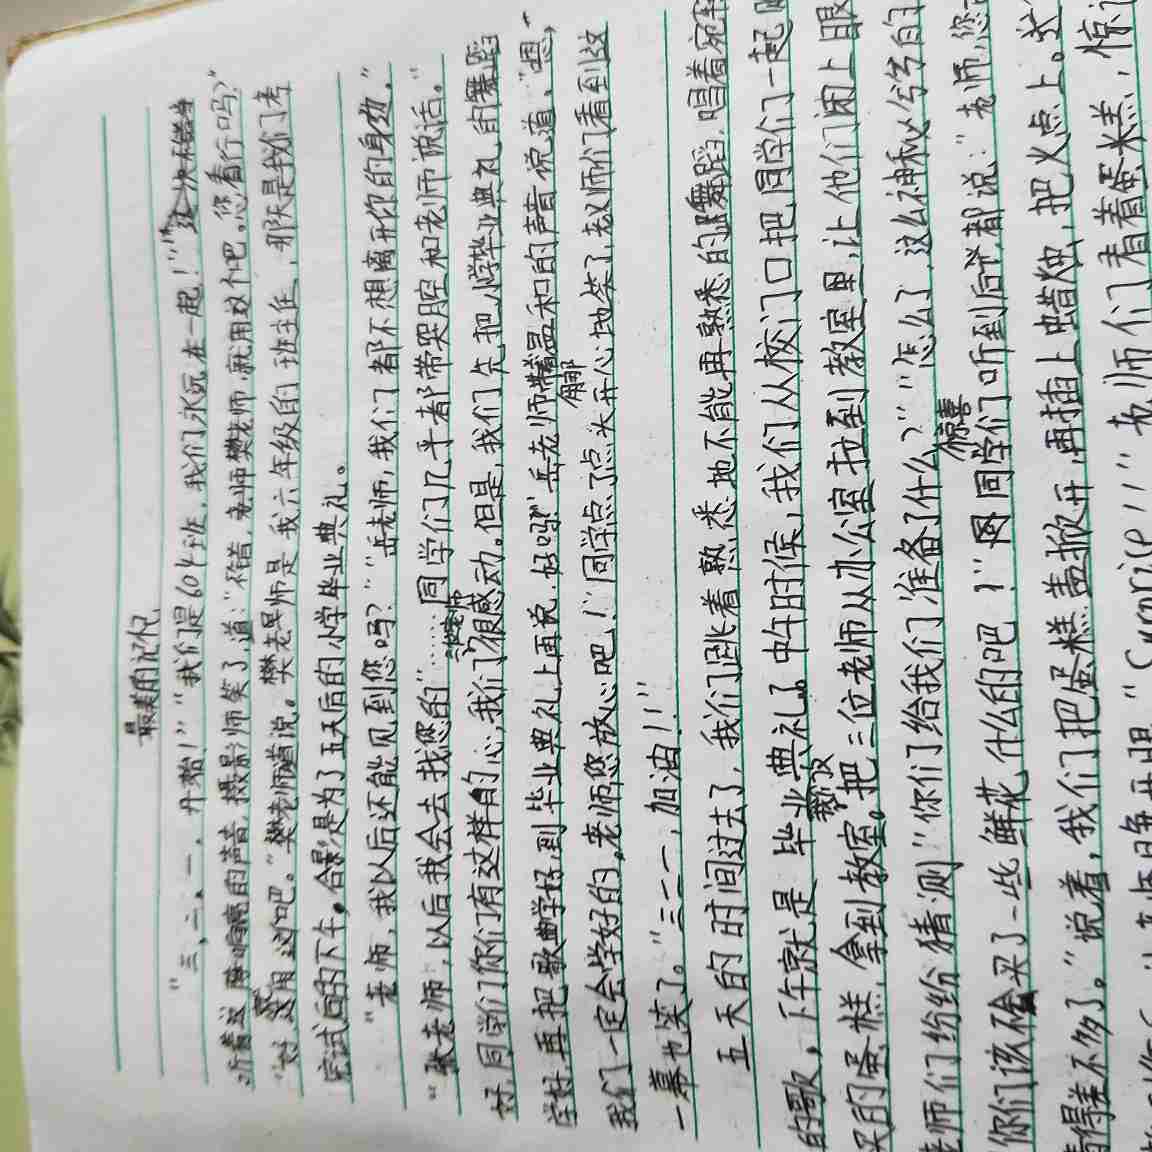 最美的记忆
“三，二，一，开始！”“我们是604班，我们永远在一起！”
听着这响亮的声音，摄影师笑了，道：“不错，老师樊老师，就用这个吧。您看行吗？”
“好，就用这个吧。”樊老师道说。樊老师是我六年级的班主任，那天是我们考
完试后的下午。合影是为了五天后的小学毕业典礼。
“老师，我以后还能见到您吗？”“岳老师，我们都不想离开你的身边。”
“张老师，以后我会去找您的”……同学们几乎都带哭腔和老师说话。“
好，同学们你们有这样的心，我们很感动。但是，我们先把小学毕业典礼的舞蹈
学好，再把歌曲学好，到毕业典礼上再说，好吗？”岳老师带着温和的声音说道。“嗯，
我们一定会学好的，老师您放心吧！”同学点了点头开心地笑了，老师们看到这
一幕也笑了。“三二一，加油！！”
五天的时间过去了，我们跳着熟悉地不能再熟悉的舞蹈，唱着
的歌，下午就是毕业典礼了。中午时候，我们从校门口把同学们一起
买的蛋糕，拿到教室。把三位老师从办公室拉到教室里，让他们闭上眼
老师们纷纷猜测“你们给我们准备了什么？”“怎么了，这么神秘兮兮的
你们该不会买了一些鲜花什么的吧！”同学们听到后说都说：“老师，您
猜得差不多了。”说着，我们把蛋糕盖掀开，再插上蜡烛，把火点上。
“Surprise！！”老师们看着蛋糕，惊